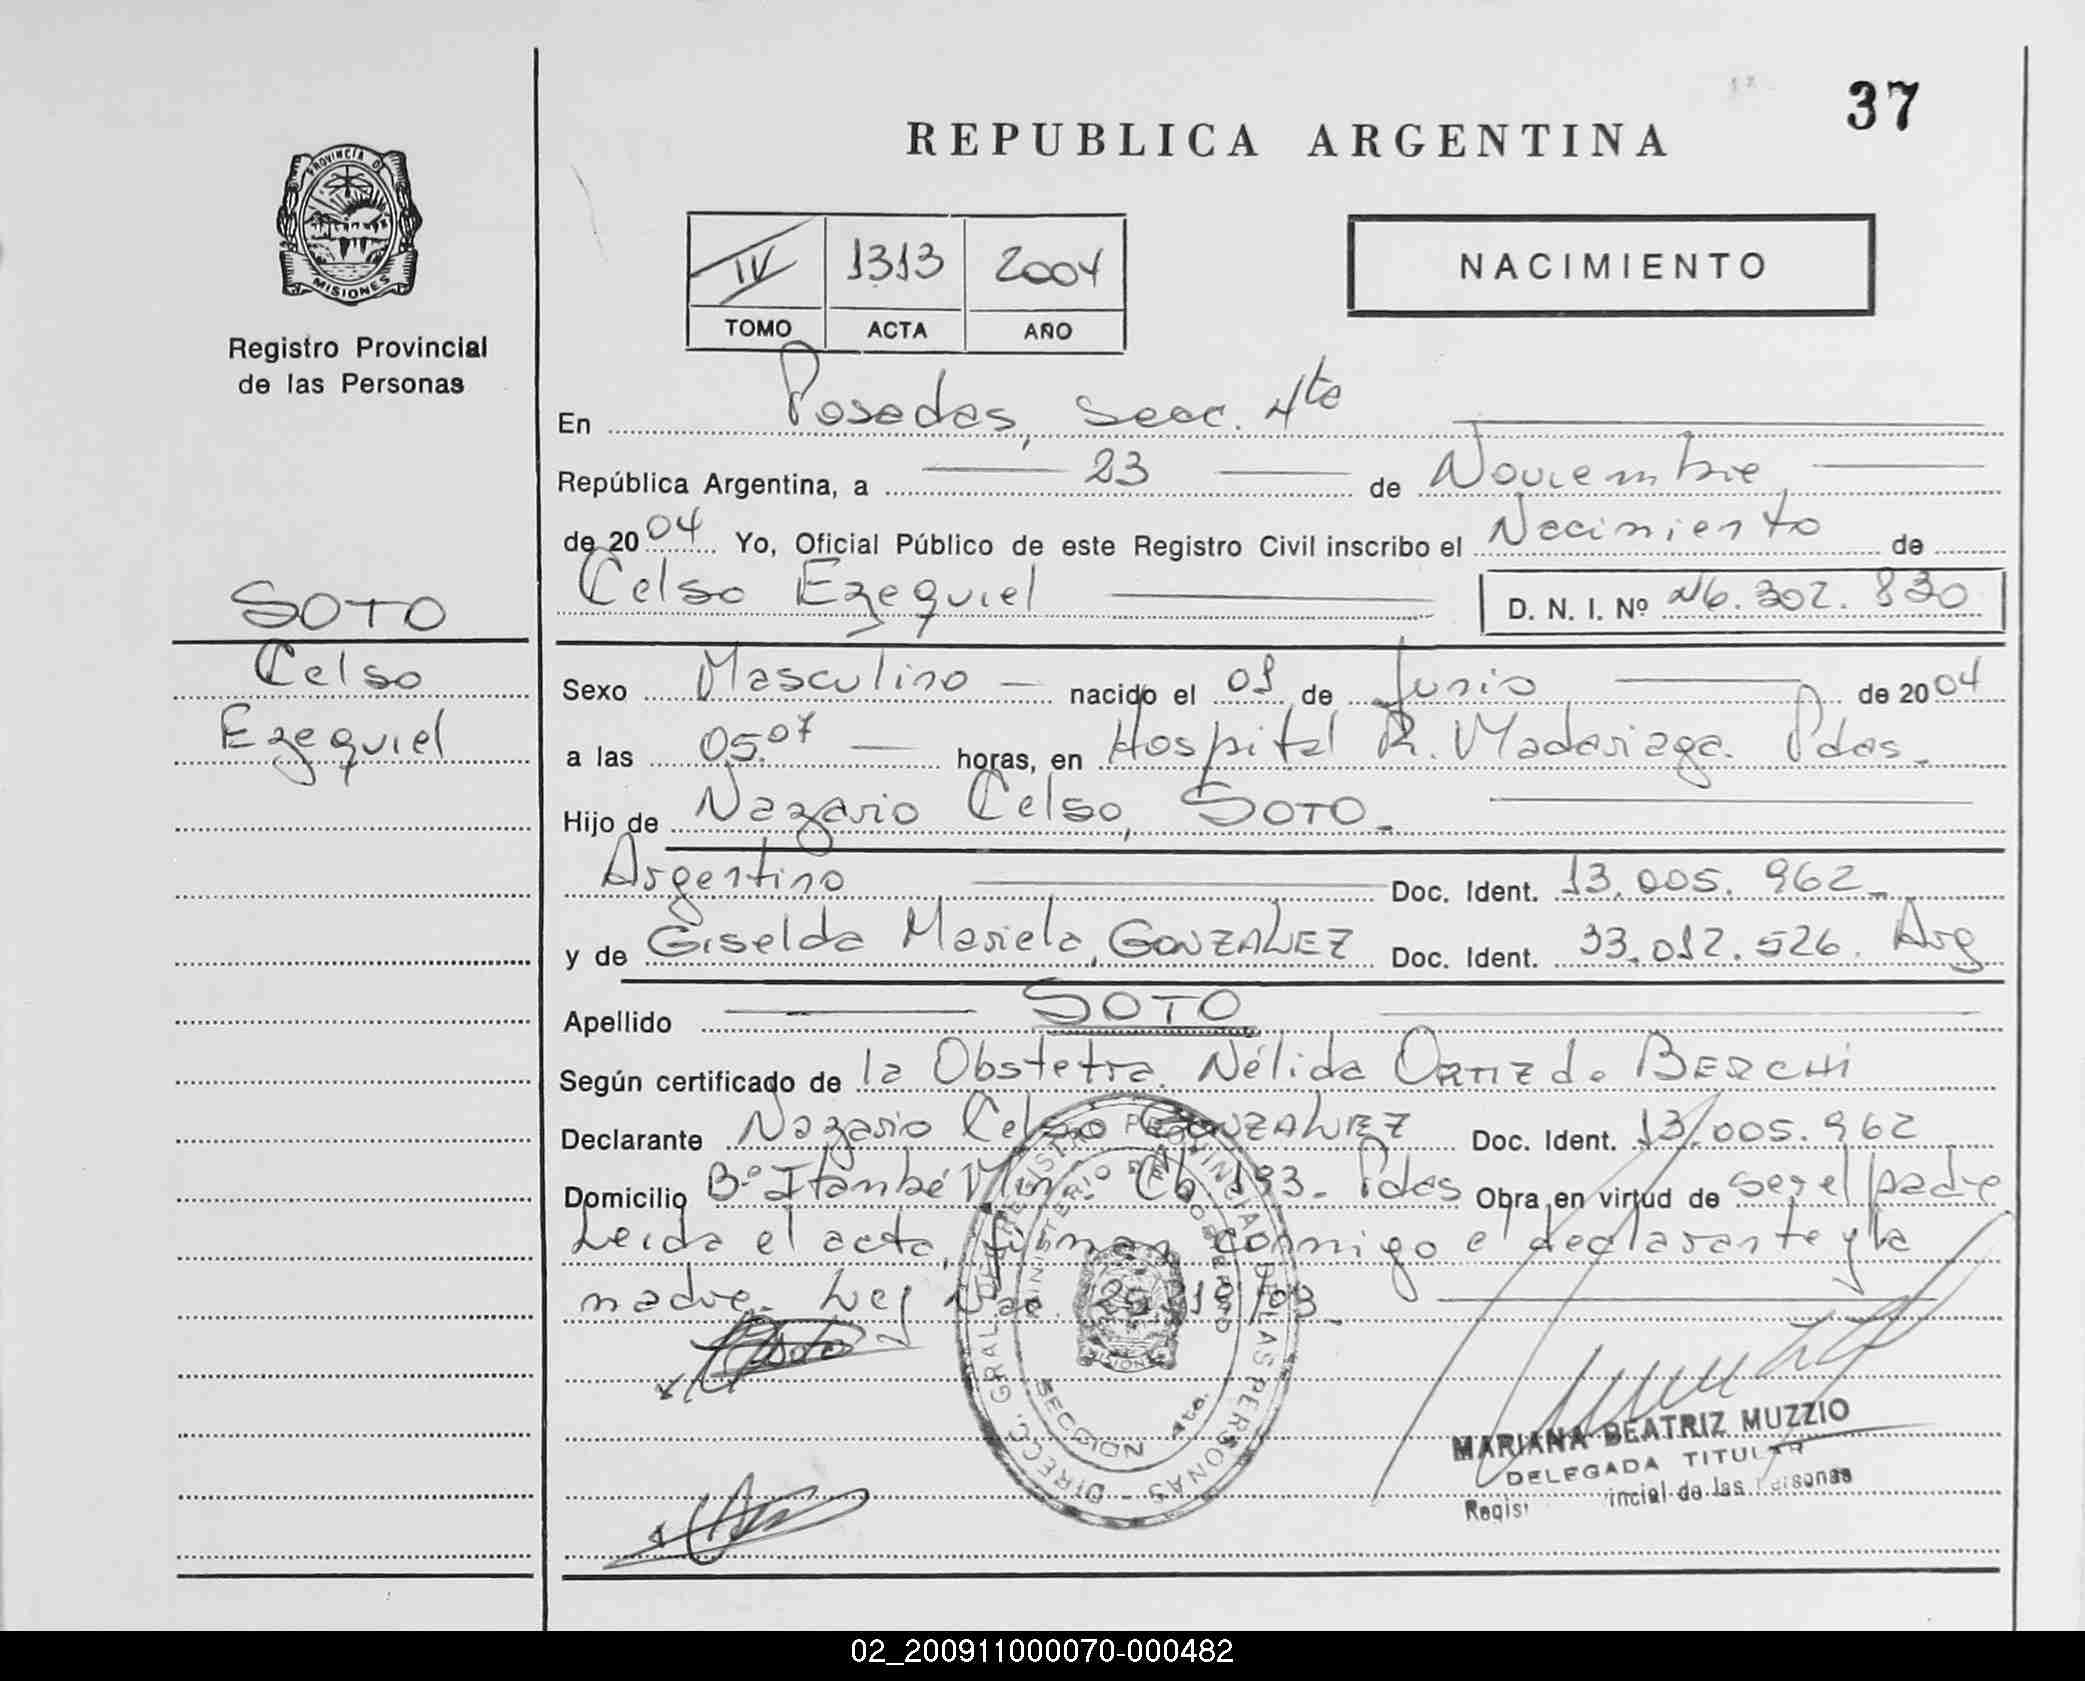 37
REPUBLICA ARGENTINA
PROVINCIA DE
MISIONES
Registro Provincial
de las Personas
IV 1313 2004
TOMO ACTA AÑO
NACIMIENTO
En Posadas, Secc. 4ta
República Argentina, a 23 de Noviembre
de 2004 Yo, Oficial Público de este Registro Civil inscribo el Nacimiento de
Celso Ezequiel D. N. I. Nº 46.302.830
SOTO
Celso
Ezequiel
Sexo Masculino nacido el 01 de Junio de 2004
a las 05.07 horas, en Hospital R. Madariaga. Pdas.
Hijo de Nazario Celso, SOTO.
Argentino Doc. Ident. 13.005.962
y de Giselda Mariela, GONZALEZ Doc. Ident. 33.012.526. Arg
Apellido SOTO
Según certificado de la Obstetra. Nélida ORTIZ de BERCHI
Declarante Nazario Celso GONZALEZ Doc. Ident. 13.005.962
Domicilio Bº Itambé Miní. Ch 193. Pdas Obra en virtud de ser el padre
Leida el acta, firman conmigo el declarante y la
madre. Ley Nac. /03
DIRECC. GRAL. DEL REGISTRO PROVINCIAL DE LAS PERSONAS
MINISTERIO DE GOBIERNO
MISIONES
SECCION 4ta.
MARIANA BEATRIZ MUZZIO
DELEGADA TITULAR
Regis incial de las Personas
02_200911000070-000482